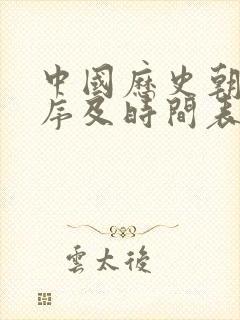 中國歷史朝
序及時間表
雲太後